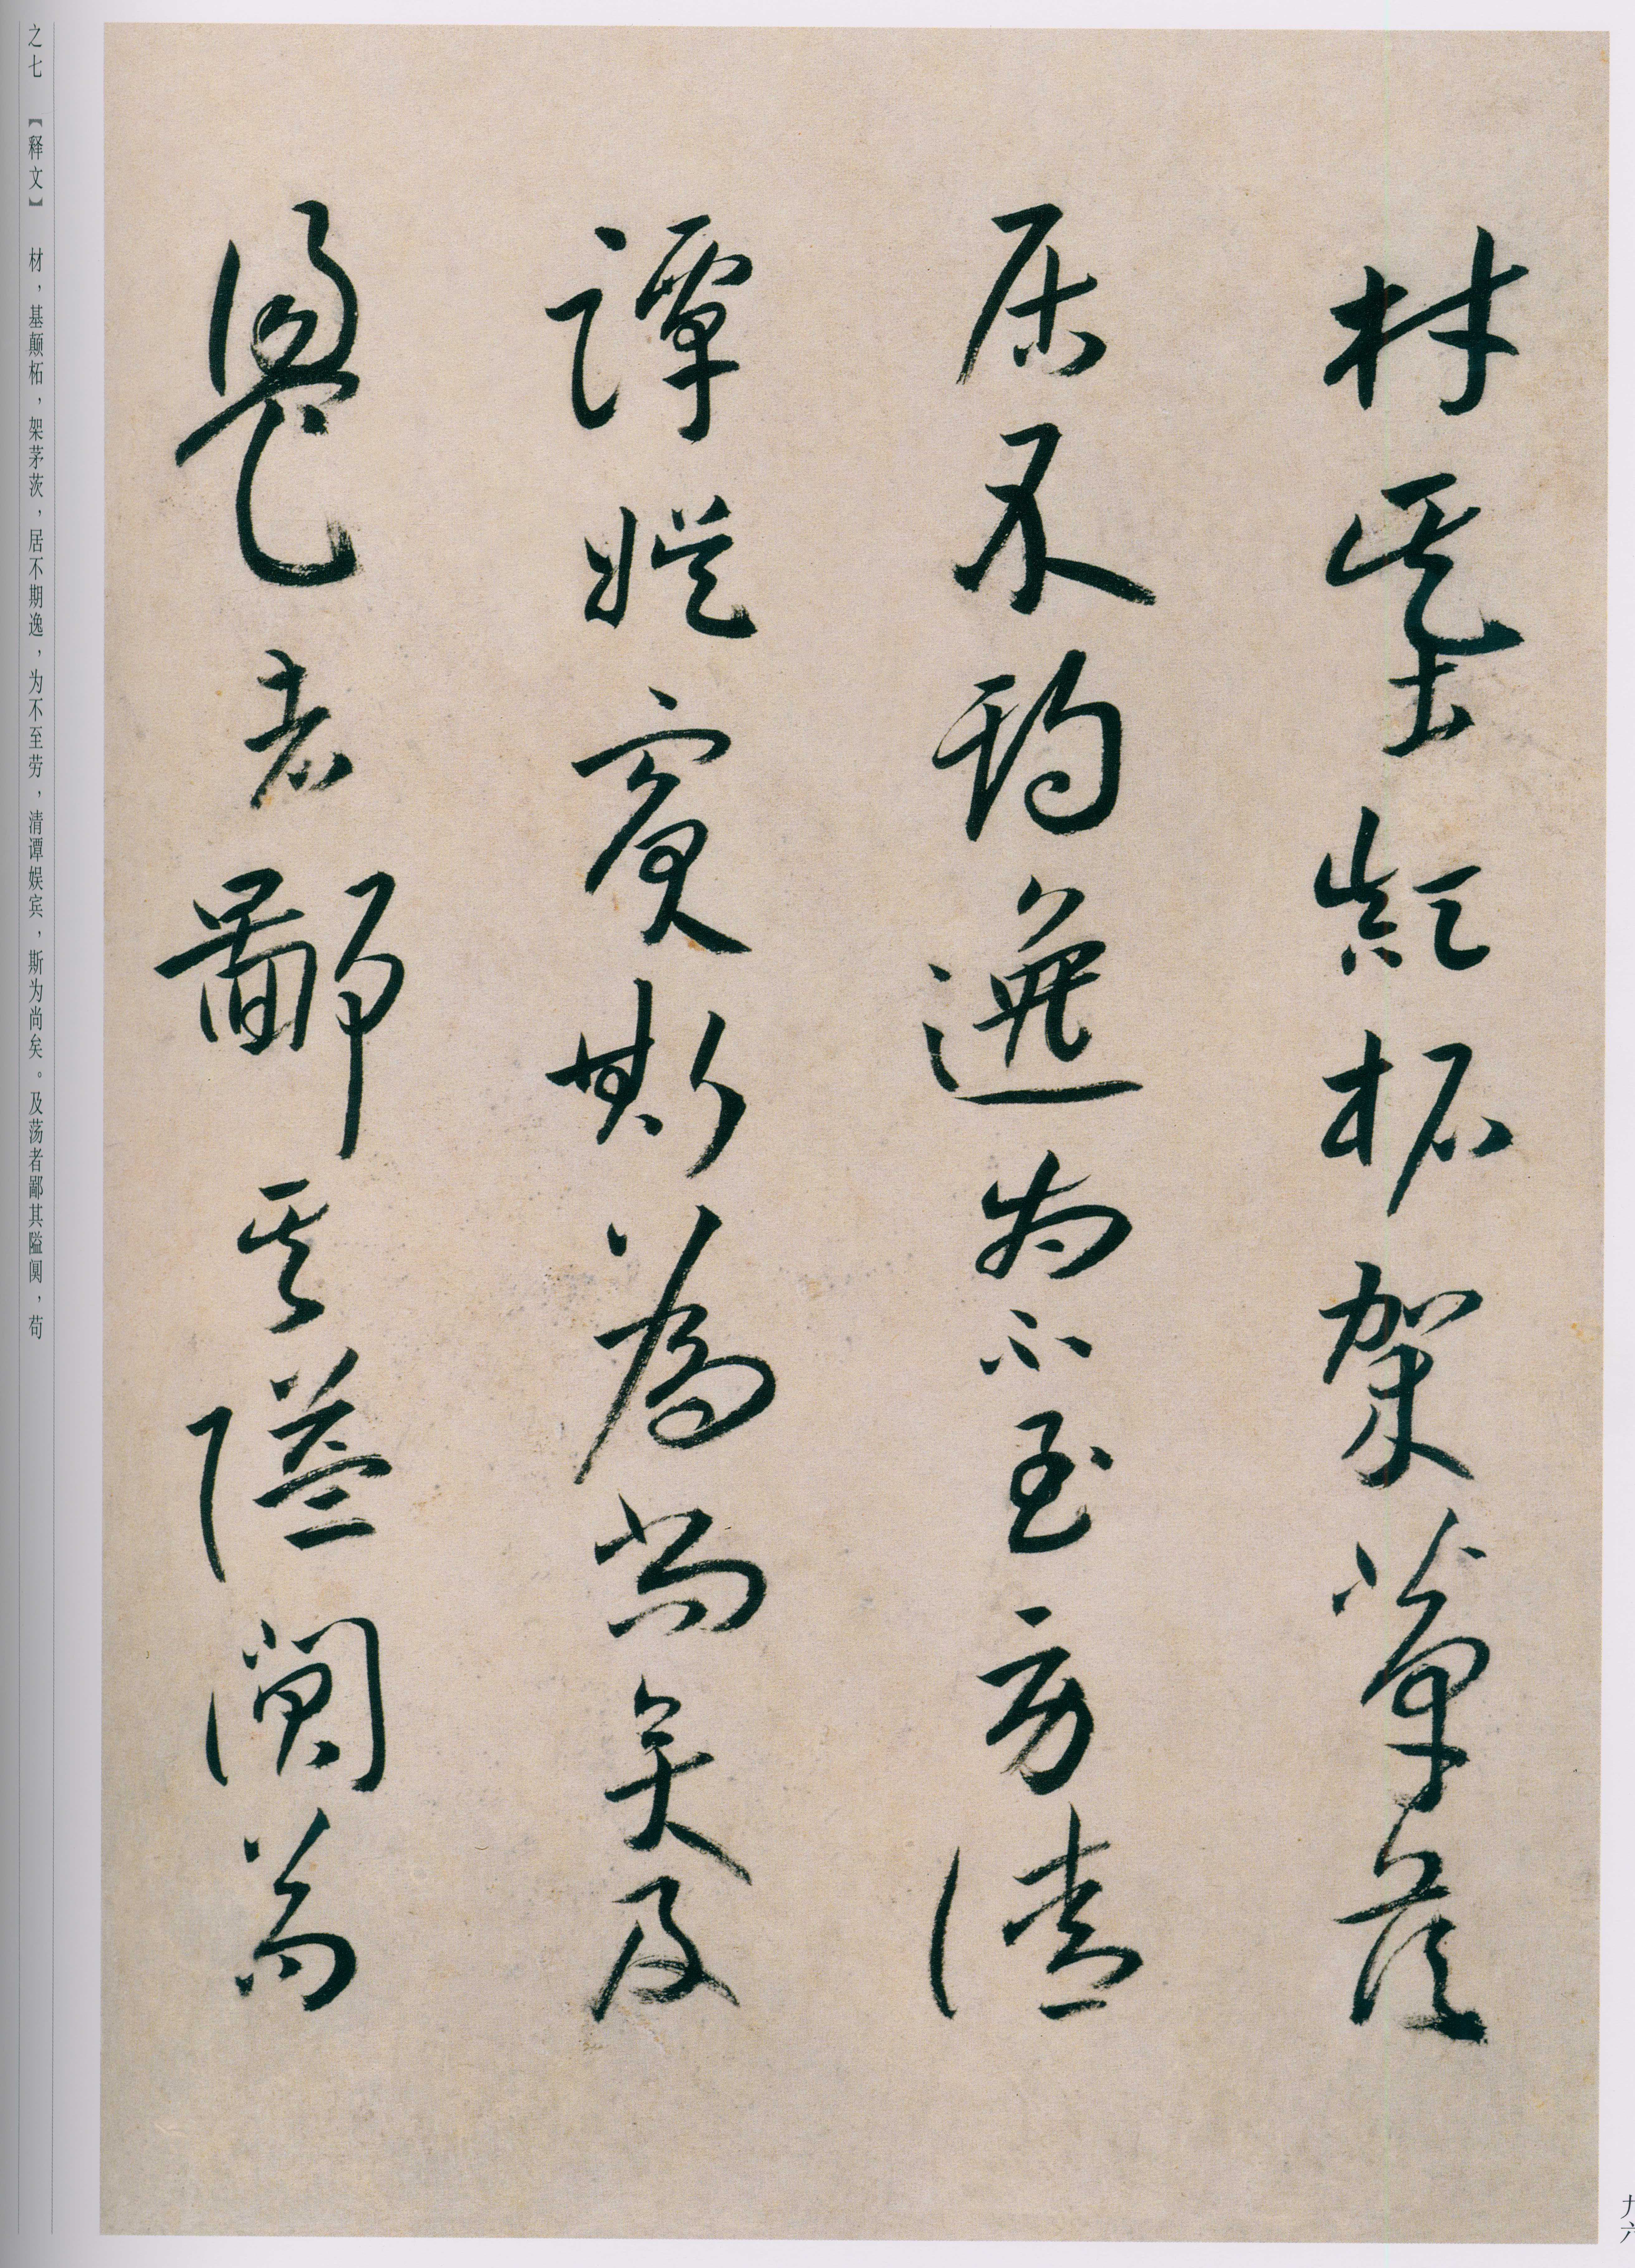 材基顛柘架茅茨
居不期逸為不至勞清
譚娛賓斯為尚矣及
盪者鄙其隘闃苟
之七 【释文】 材，基颠柘，架茅茨，居不期逸，为不至劳，清谭娱宾，斯为尚矣。及荡者鄙其隘阒，苟
九六